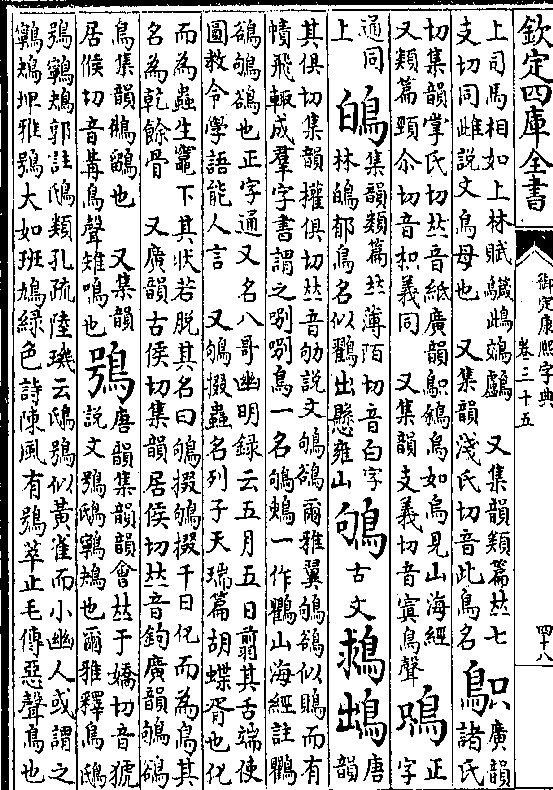 欽定四庫全書
御定康熙字典
卷三十五
四十八
上司馬相如上林賦鱵鴜鵁鸕 又集韻類篇𠀤七
支切同雌說文鳥母也 又集韻淺氏切音此鳥名
䳅 廣韻諸氏
切集韻掌氏切𠀤音紙廣韻䳅鵌鳥如烏見山海經
又類篇頸尒切音枳義同 又集韻支義切音寘鳥聲
正字
通同
上
䳆 集韻類篇𠀤薄陌切音白字
林䳆郁鳥名似鸜出懸雍山
鴝 古文 唐韻
其俱切集韻權俱切𠀤音劬說文鴝鵒爾雅翼鴝鵒似鵙而有
幘飛輒成羣字書謂之唎唎鳥一名鴝一作鸜山海經註鸜
鵒鴝鵒也正字通又名八哥幽明録云五月五日翦其舌端使
圖教令學語能人言 又鴝掇蟲名列子天瑞篇胡蝶胥也化
而為蟲生竈下其狀若脫其名曰鴝掇鴝掇千日化而為鳥其
名為乾餘骨 又廣韻古侯切集韻居侯切𠀤音鉤廣韻鴝鵅
鳥集韻鵂鶹也 又集韻
居候切音冓鳥聲雉鳴也
鴞 唐韻集韻韻會𠀤于嬌切音猇
說文鴞鴟鸋鴂也爾雅釋鳥鴟
鴞鸋鴂郭註鴟類孔疏陸璣云鴟鴞似黃雀而小幽人或謂之
鸋鴂埤雅鴞大如班鳩綠色詩陳風有鴞萃止毛傳惡聲鳥也